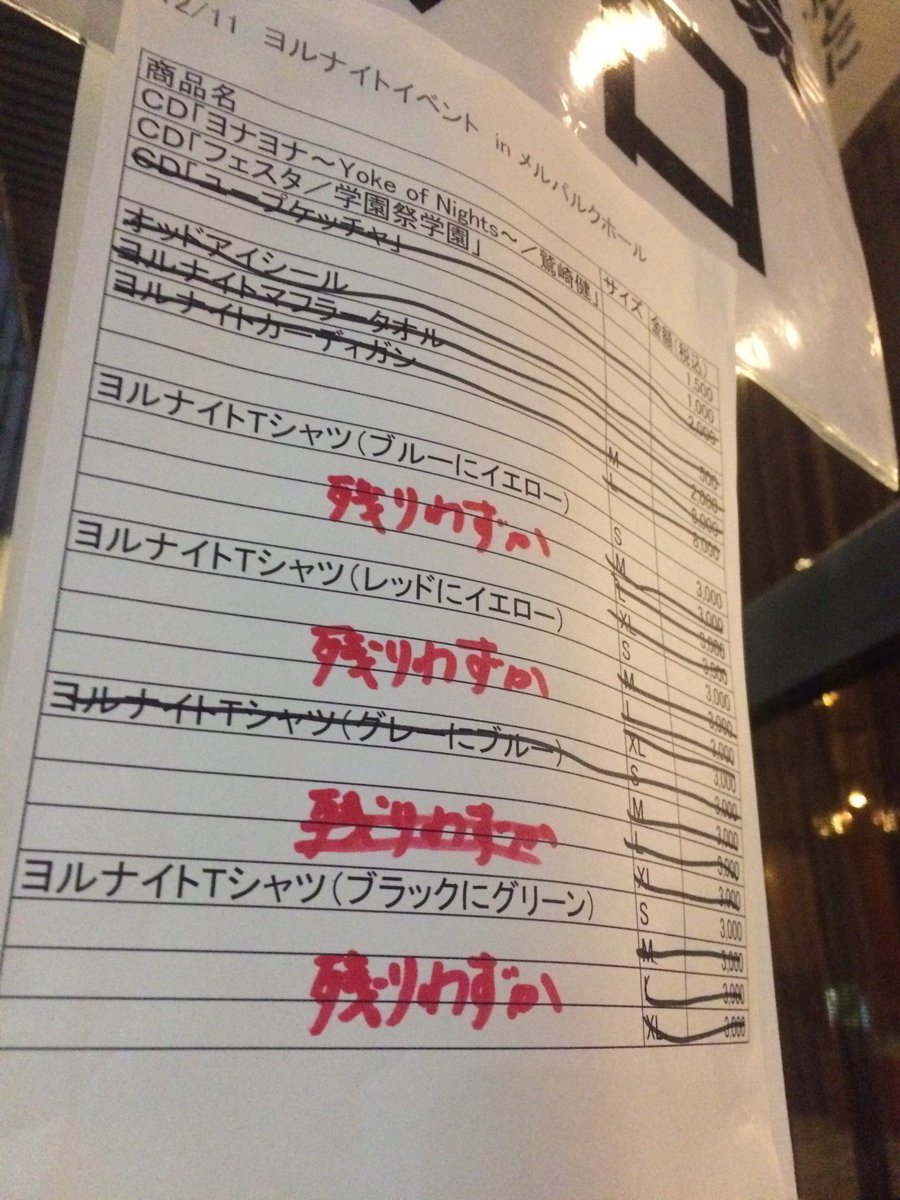 12/11 ヨルナイトイベント in メルパルクホール
商品名 サイズ 金額(税込)
CD「ヨナヨナ～Yoke of Nights～／鷲崎健」 1,500
CD「フェスタ／学園祭学園」 1,000
CD「ユープケッチャ」 2,000
オッドアイシール 500
ヨルナイトマフラータオル 2,000
ヨルナイトカーディガン M 8,000
L 8,000
ヨルナイトTシャツ（ブルーにイエロー） S 3,000
M 3,000
L 3,000
XL 3,000
残りわずか
ヨルナイトTシャツ（レッドにイエロー） S 3,000
M 3,000
L 3,000
XL 3,000
残りわずか
ヨルナイトTシャツ（グレーにブルー） S 3,000
M 3,000
L 3,000
XL 3,000
残りわずか
ヨルナイトTシャツ（ブラックにグリーン） S 3,000
M 3,000
L 3,000
XL 3,000
残りわずか